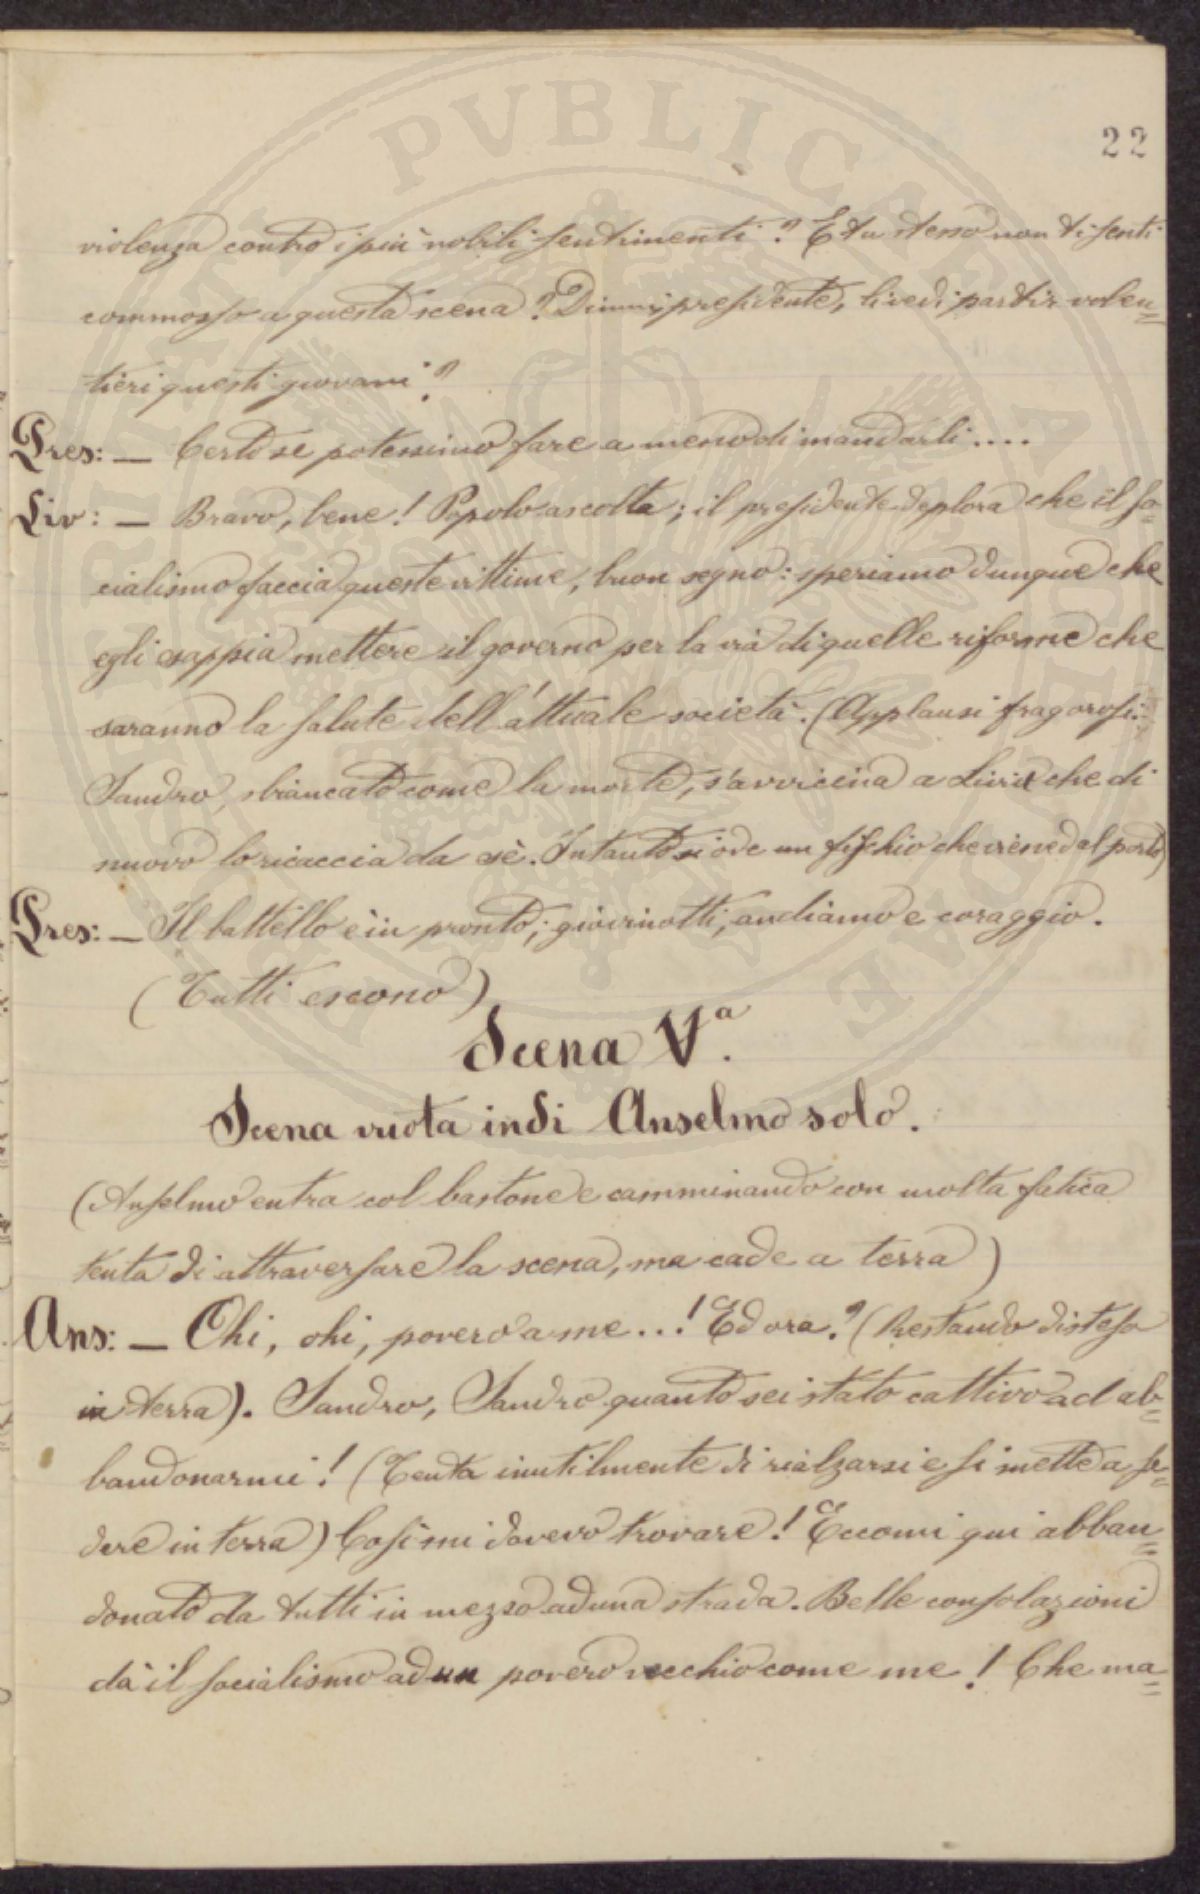 22
violenza contro i più nobili sentimenti? E tu stesso non ti senti
commosso a questa scena? Dimmi presidente, li vedi partir volen=
tieri questi giovani?
Pres: — Certo se potessimo fare a meno di mandarli....
Liv: — Bravo, bene! Popolo ascolta; il presidente deplora che il so=
cialismo faccia queste vittime; buon segno: speriamo dunque che
egli sappia mettere il governo per la via di quelle riforme che
saranno la salute dell'attuale società. (Applausi fragorosi.
Sandro, sbiancato come la morte, s'avvicina a Livia che di
nuovo lo ricaccia da sè. Intanto si ode un fischio che viene dal porto)
Pres: — Il battello è in pronto; giovinotti, andiamo e coraggio.
(Tutti escono)
Scena Vª.
Scena vuota indi Anselmo solo.
(Anselmo entra col bastone e camminando con molta fatica
tenta di attraversare la scena, ma cade a terra)
Ans: — Ohi, ohi, povero a me...! Ed ora? (Restando disteso
in terra). Sandro, Sandro quanto sei stato cattivo ad ab=
bandonarmi! (Tenta inutilmente di rialzarsi e si mette a se=
dere in terra) Così mi dovevo trovare! Eccomi qui abban=
donato da tutti in mezzo ad una strada. Belle consolazioni
dà il socialismo ad un povero vecchio come me! Che ma=
PUBLICAE